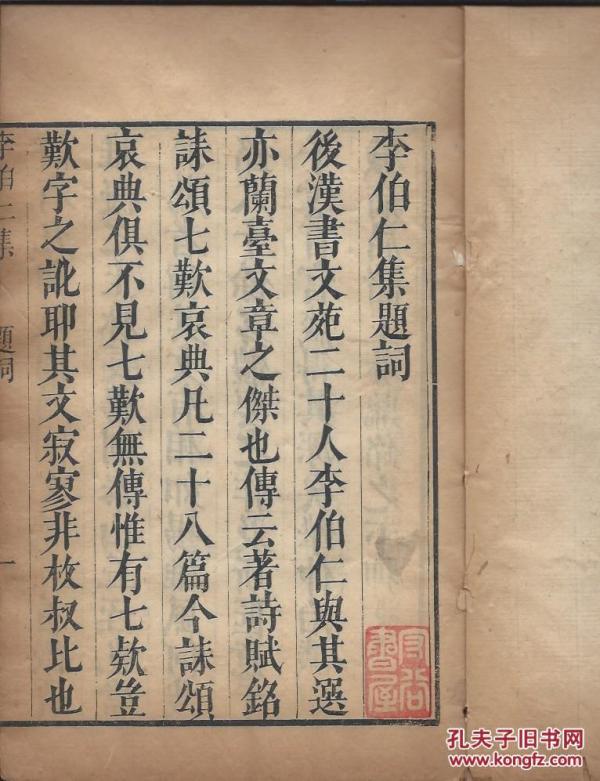 李伯仁集題詞
後漢書文苑二十人李伯仁與其選
亦蘭臺文章之傑也傳云著詩賦銘
誄頌七歎哀典凡二十八篇今誄頌
哀典俱不見七歎無傳惟有七欵豈
歎字之訛耶其文寂寥非枚叔比也
李伯仁集 題詞 一
書屋
孔夫子旧书网
www.kongfz.com